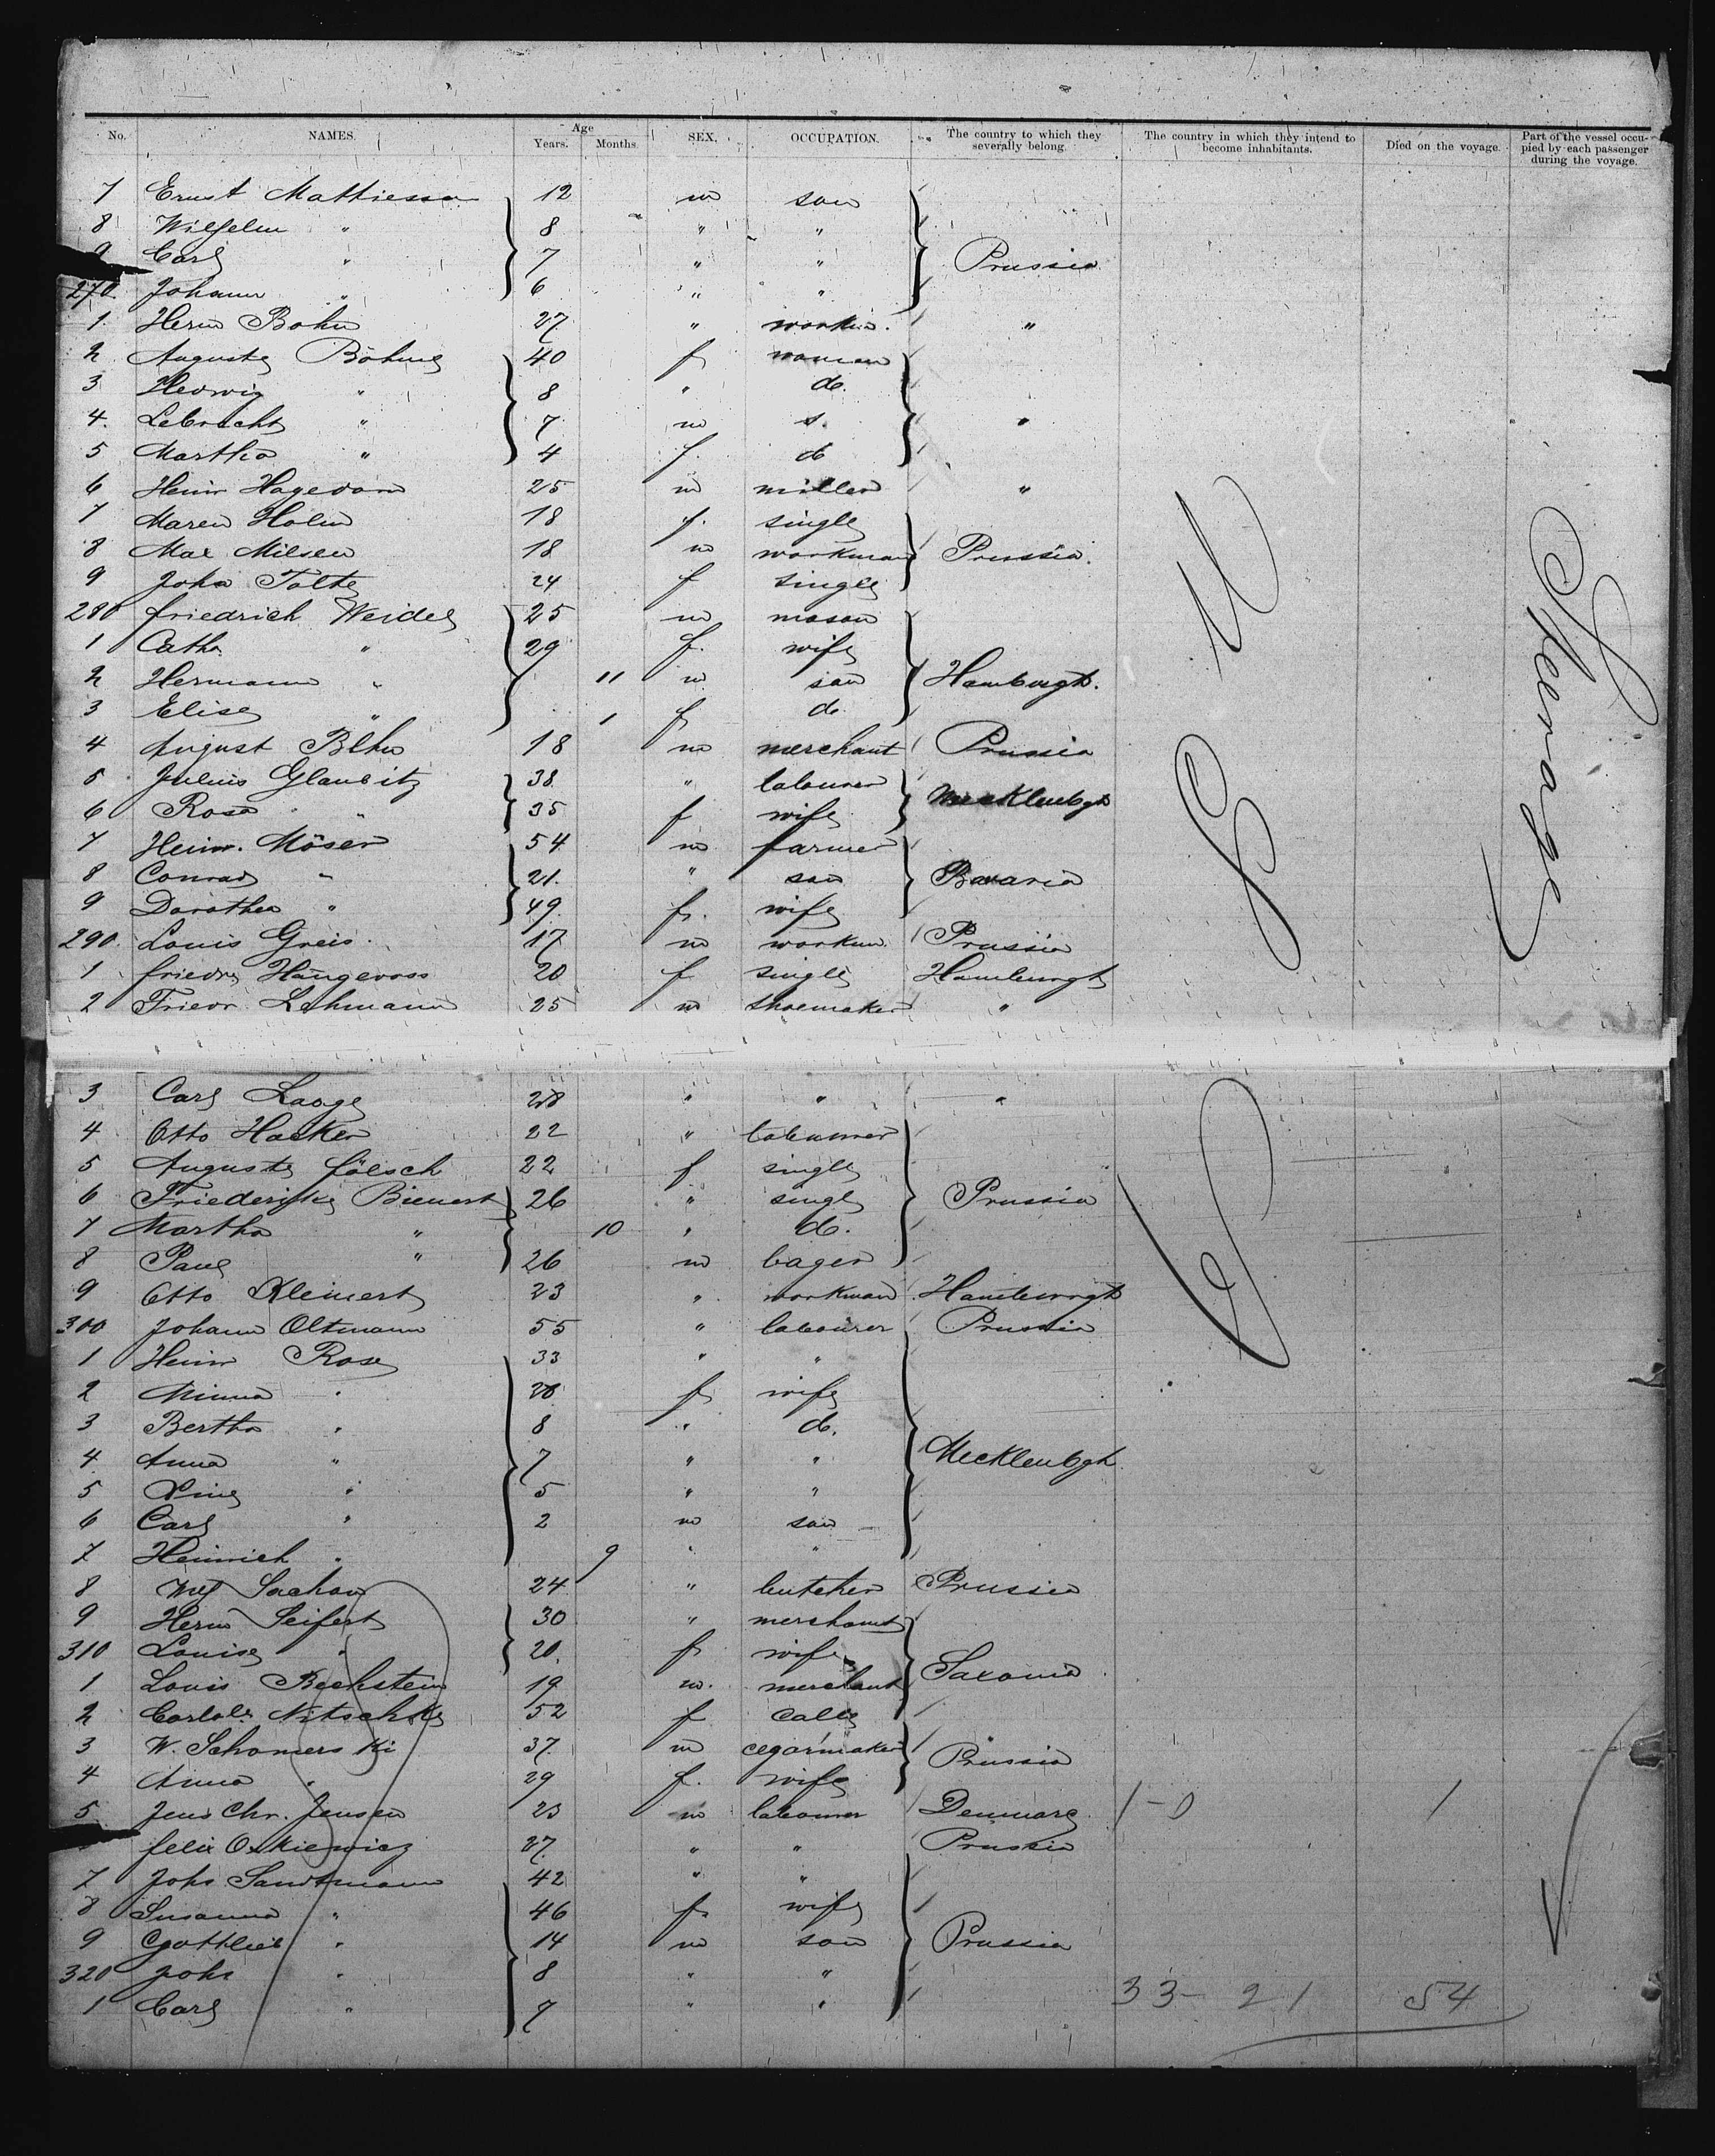 No. NAMES. Age Years. Months. SEX. OCCUPATION. The country to which they severally belong. The country in which they intend to become inhabitants. Died on the voyage. Part of the vessel occupied by each passenger during the voyage.
7 Ernst Mathiessen 12 m son
8 Wilhelm " 8 " "
9 Carl " 7 " " Prussia
270 Johann " 6 " "
1. Herm Bohn 27 " workm. "
2 Auguste Böhme 40 f woman
3 Hedwig " 8 " d.
4. Lebrecht " 7 m s. "
5 Martha " 4 f. d
6 Heinr Hagedorn 25 m miller "
7 Maren Holm 18 f. single
8 Max Milsen 18 m workman Prussia.
9 Joha Tolte 24 f single
280 Friedrich Weidel 25 m mason
1 Cath. " 29 f. wife
2 Hermann " 11 m son Hamburgh.
3 Elise " 1 f d.
4 August Blhn 18 m merchant Prussia
5 Julius Glaubitz 38 " labourer Mecklenbgh
6 Rosa " 35 f wife
7 Heinr. Möser 54 m farmer
8 Conrad " 21. " son Bavaria
9 Dorothea " 49 f. wife
290. Louis Greis. 17 m workm. Prussia
1 Friedr. Hängevoss 20 f single Hamburgh
2 Friedr. Lehmann 25 m shoemaker "
3 Carl Lange 28 " " "
4 Otto Hacker 22 " labourer
5 Auguste Fölsch 22 f single
6 Friederike Bienert 26 " single Prussia
7 Martha " 10 " d.
8 Paul " 26 m bager
9 Otto Kleinert 23 " workman Hamburgh
300 Johann Oltmann 55 " labourer Prussia
1 Heinr Rose 33 " "
2 Minna " 28 f wife
3 Bertha " 8 " d.
4 Anna " 7 " " Mecklenbgh
5 Line " 5 " "
6 Carl " 2 m son
7 Heinrich " 9 " "
8 Wilh Suckow 24 " butcher Prussia
9 Herm Seifert 30 " merchant
310 Louise " 20. f wife Saxonia
1 Louis Bechstein 19 m. merchant
2 Nitschke 52 f
3 W. Schomerski 37 m cegarmaker Prussia
4 Anna " 29 f. wife
5 Jens Chr. Jensen 23 m labourer Denmark 1-0 1
Felix Oskiewicz 27 " " Prussia
7 Johs Sandtmann 42 " "
8 Susanna " 46 f. wife
9 Gottlieb " 14 m son Prussia
320 Johs " 8 " "
1 Carl " 7 " " 33- 21 54
U
S
Steerage